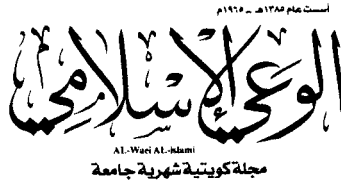 أسست عام ١٣٨٥هـ - ١٩٦٥م
الوعي الإسلامي
AL-Waei AL-Islami
مجلة كويتية شهرية جامعة